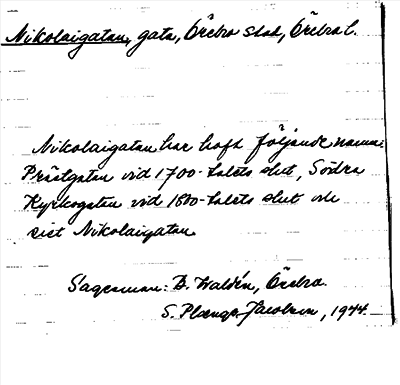 Nikolaigatan, gata, Örebro stad, Örebro l.
Nikolaigatan har haft följande namn:
Prästgatan vid 1700-talets slut, Södra
Kyrkogatan vid 1800-talets slut och
sist Nikolaigatan.
Sagesman: B. Waldén, Örebro.
S. Plænge-Jacobson, 1944.